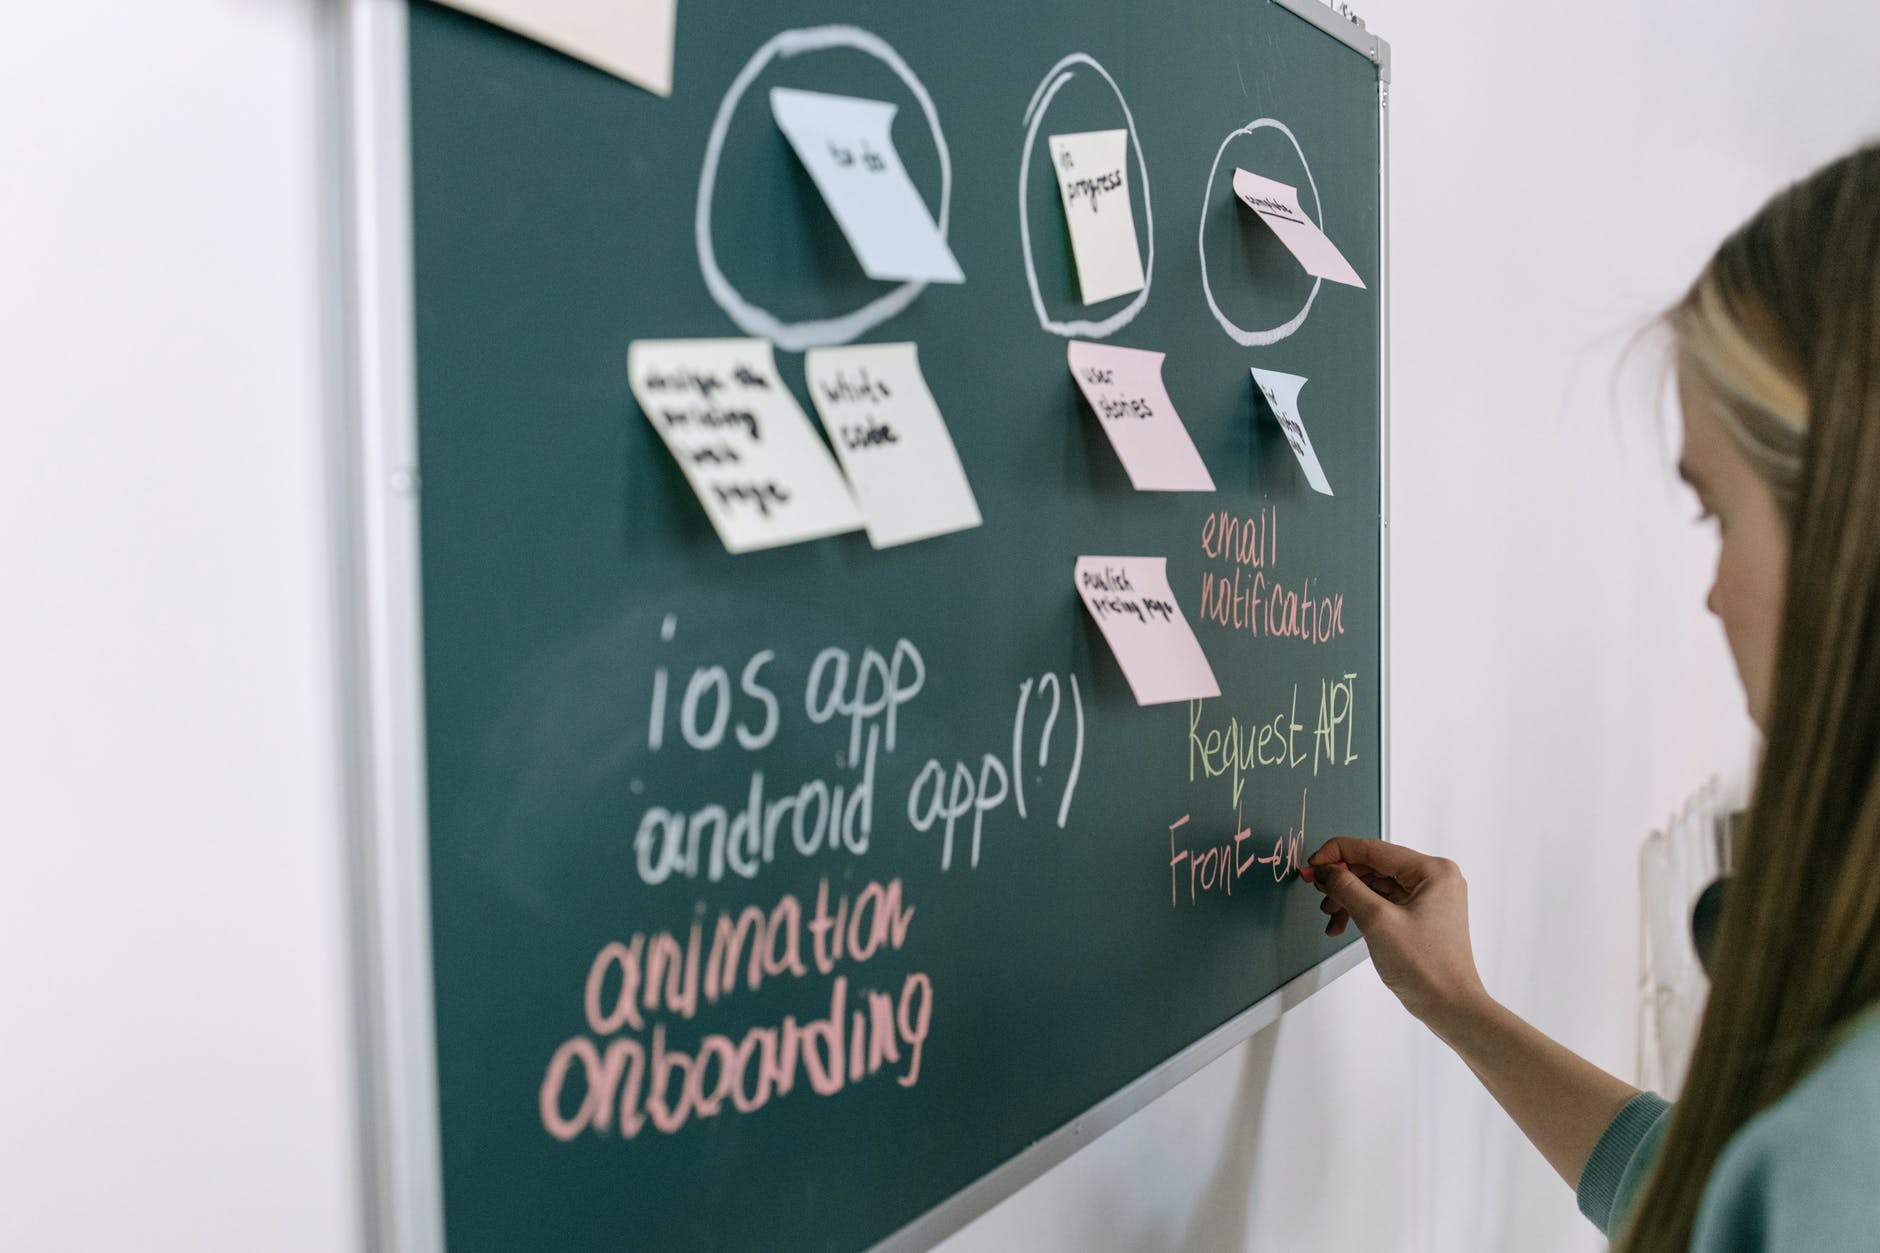 to do
in
progress
complete
design the
pricing
web
page
write
code
user
stories
publish
pricing page
email
notification
Request API
Front-end
ios app
android app(?)
animation
onboarding